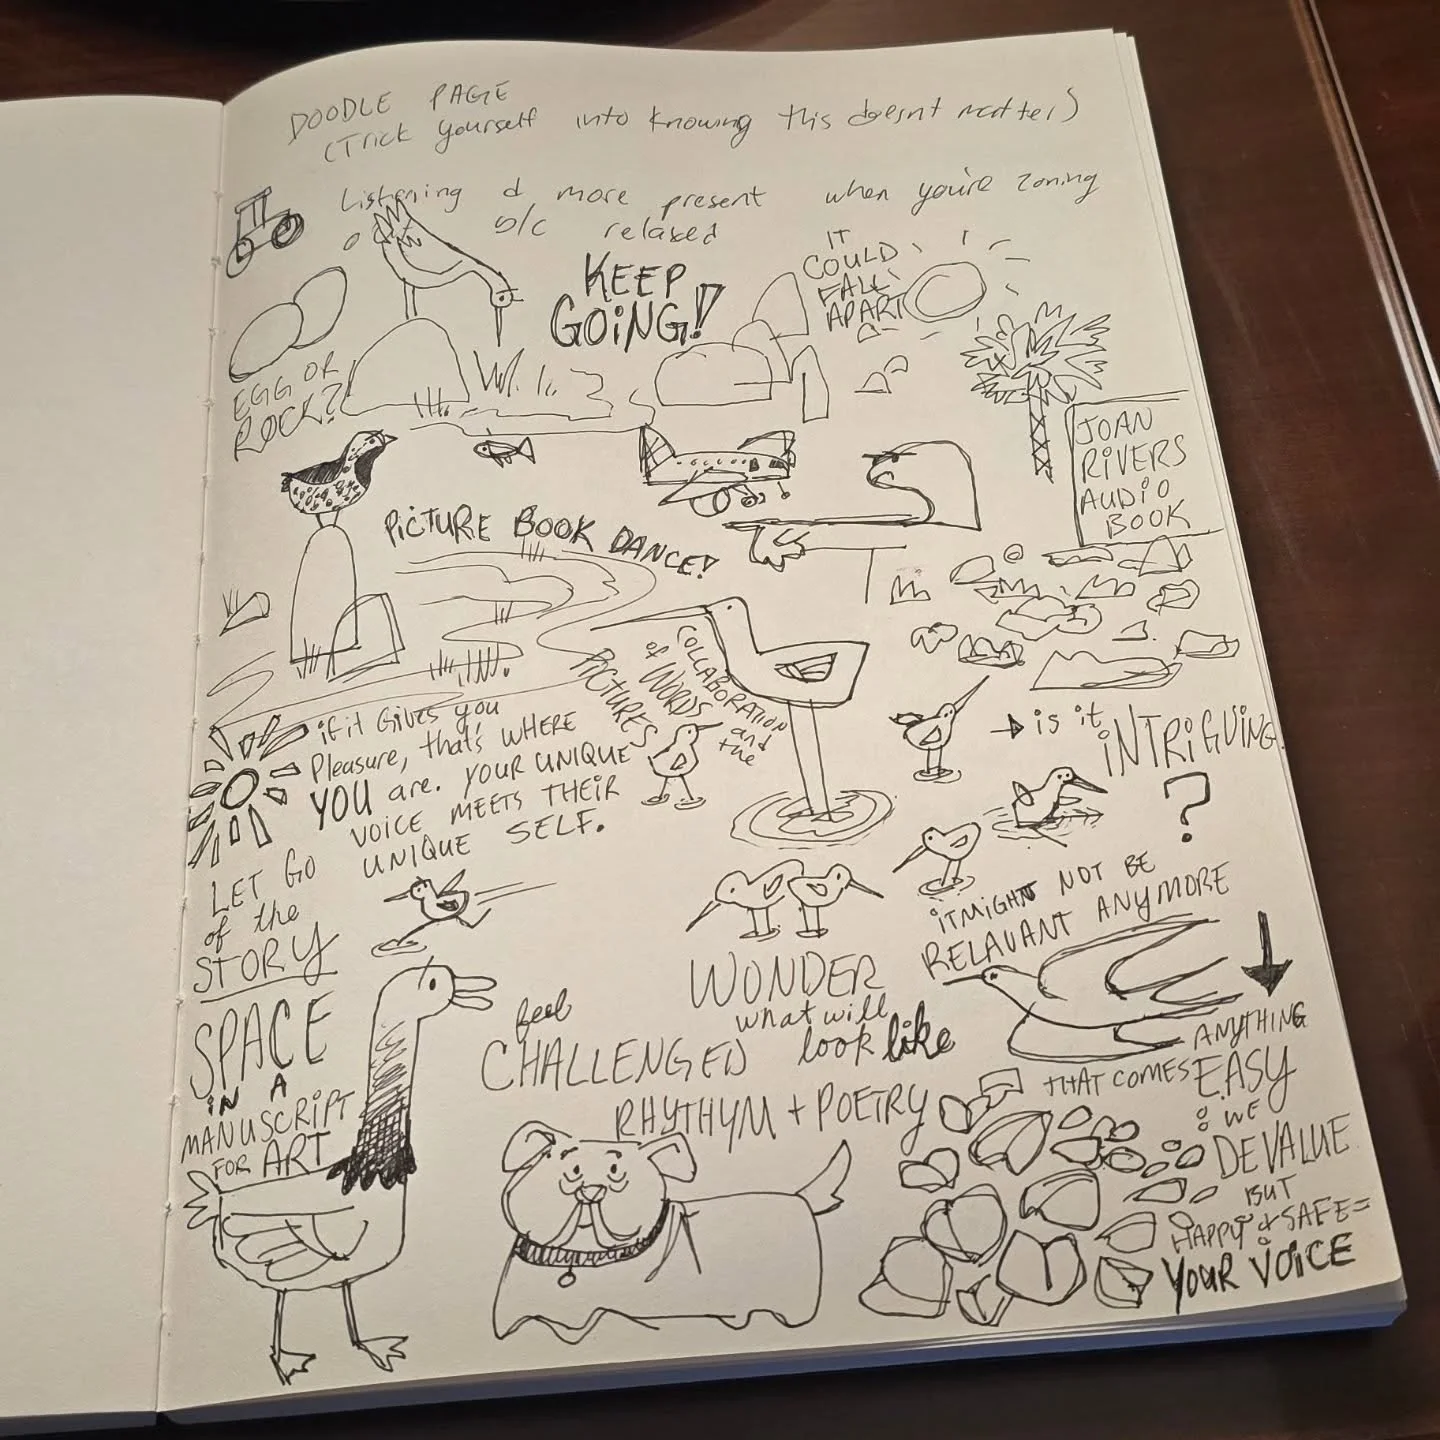 DOODLE PAGE
(Trick yourself into knowing this doesnt matter)
Listening d more present when you're zoning
o b/c relaxed
KEEP
GOING!
IT
COULD
FALL
APART
EGG OR
ROCK?
JOAN
RIVERS
AUDIO
BOOK
PICTURE BOOK DANCE!
COLLABORATION
of WORDS and
PICTURES the
if it GiVES you
Pleasure, that's WHERE
YOU are. YOUR UNIQUE
VOICE MEETS THEIR
UNIQUE SELF.
→ is it INTRIGUING
?
LET GO
of the
STORY
iT MIGHT NOT BE
RELAVANT ANYMORE
SPACE
IN A
MANUSCRIPT
FOR ART
WONDER
what will
look like
feel
CHALLENGED
RHYTHYM + POETRY
ANYTHING
THAT COMES EASY
WE
DEVALUE
BUT
HAPPY + SAFE =
YOUR VOICE